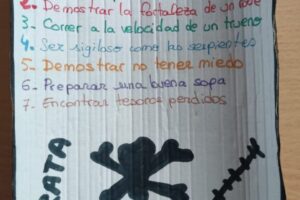 2- Demostrar la fortaleza de un
3- Correr a la velocidad de un trueno
4- Ser sigiloso como las serpientes
5- Demostrar no tener miedo
6- Preparar una buena sopa
7- Encontrar tesoros perdidos
RATA